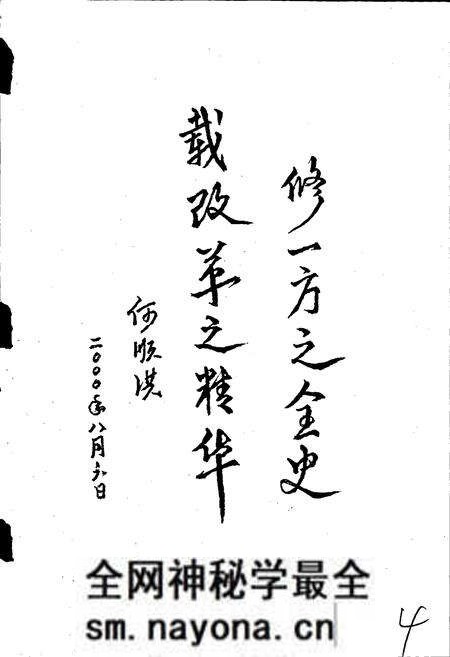 修一方之全史
载改革之精华
何顺洪
二000年八月六日
全网神秘学最全
sm.nayona.cn
4